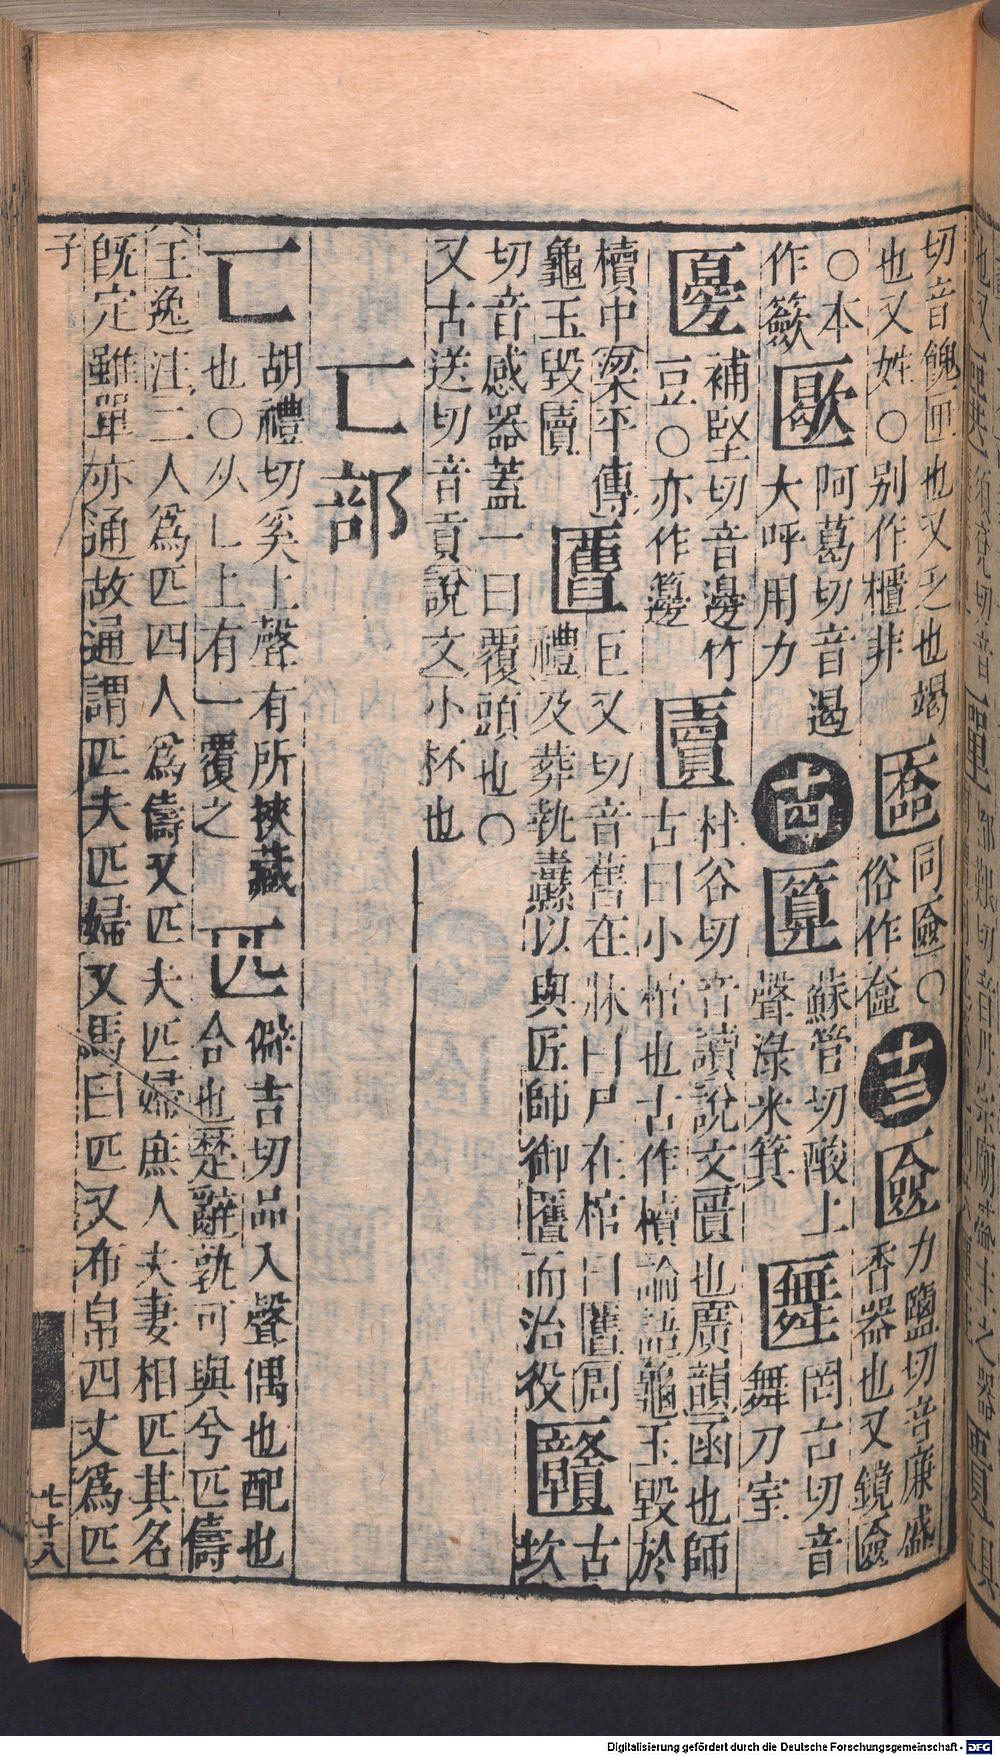 切音餽匣也又乏也竭
也又姓○别作櫃非
同匳○
俗作奩
十三
匳
力鹽切音廉盛
香器也又鏡匳
○本
作籨
阿葛切音遏
大呼用力
十四
匴
蘇管切酸上
聲淥米箕
罔古切音
舞刀室
補堅切音邊竹
豆○亦作籩
匵
杜谷切音讀說文匱也廣韻函也師
古曰小棺也古作櫝論語龜玉毀於
櫝中梁平傳
龜玉毀匵
匶
巨又切音舊在牀曰尸在棺曰匶周
禮及葬執纛以與匠師御匶而治役
古
坎
切音感器蓋一曰覆頭也○
又古送切音貢說文小杯也
匸部
匸
胡禮切奚上聲有所挾藏
也○从乚上有一覆之
匹
僻吉切品入聲偶也配也
合也楚辭孰可與兮匹儔
王逸注二人爲匹四人爲儔又匹夫匹婦庶人夫妻相匹其名
既定雖單亦通故通謂匹夫匹婦又馬曰匹又布帛四丈爲匹
子
七十八
Digitalisierung gefördert durch die Deutsche Forschungsgemeinschaft - DFG